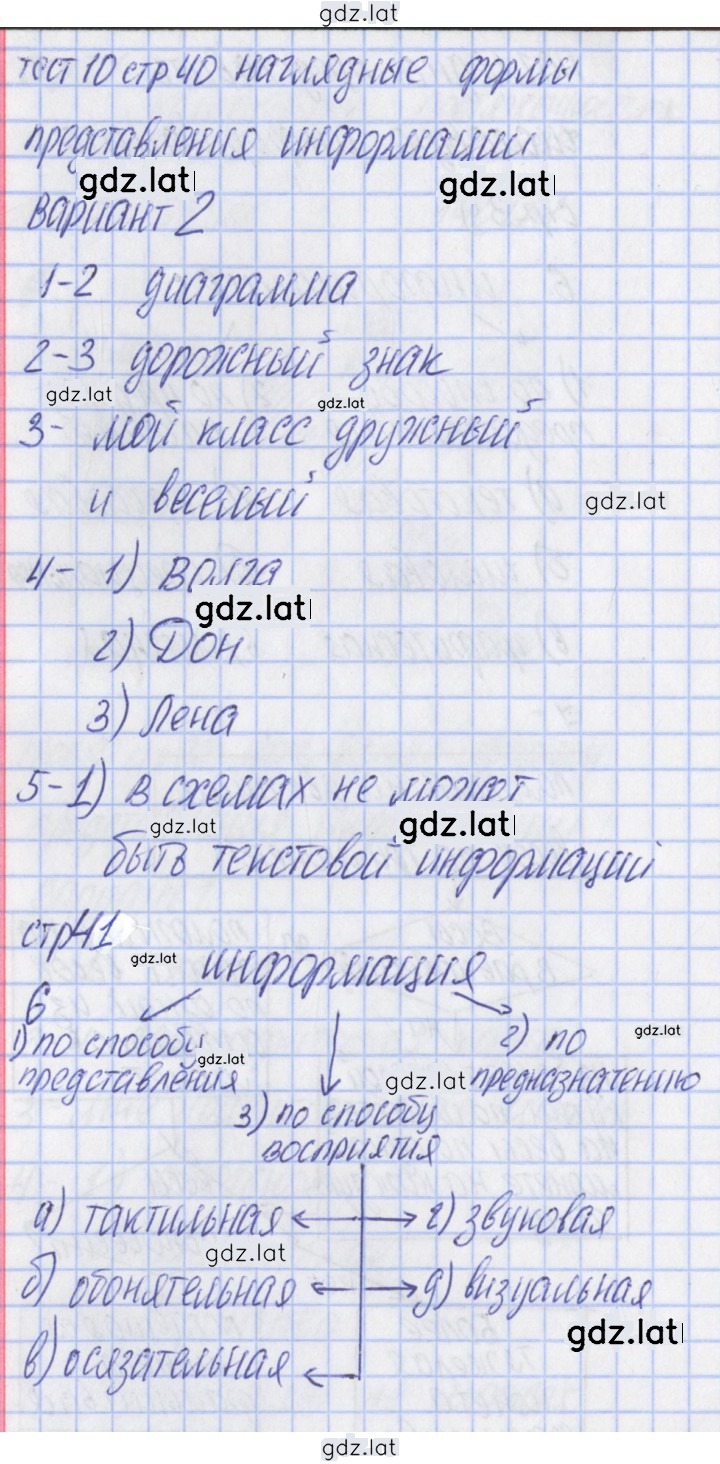 gdz.lat
тест 10 стр 40 наглядные формы
представления информации
gdz.lat gdz.lat
Вариант 2
1-2 диаграмма
2-3 дорожный знак
gdz.lat gdz.lat
3- мой класс дружный
и веселый gdz.lat
4- 1) Волга
gdz.lat
2) Дон
3) Лена
5-1) в схемах не может
gdz.lat gdz.lat
быть текстовой информаций
стр 41
gdz.lat информация
6
1) по способу gdz.lat 2) по gdz.lat
представления gdz.lat предназначению
3) по способу
восприятия
а) тактильная г) звуковая
gdz.lat
б) обонятельная д) визуальная
gdz.lat
в) осязательная
gdz.lat